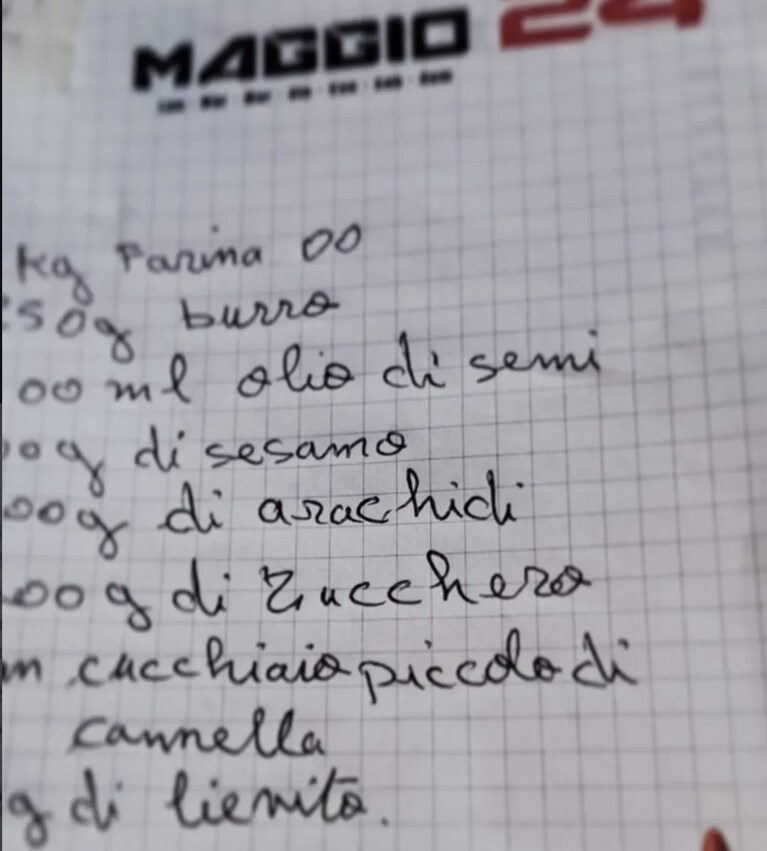 MAGGIO 24
kg Farina 00
50g burro
00 ml olio di semi
0g di sesamo
00g di arachidi
00 g di Zucchero
un cucchiaio piccolo di
cannella
g di lievito.